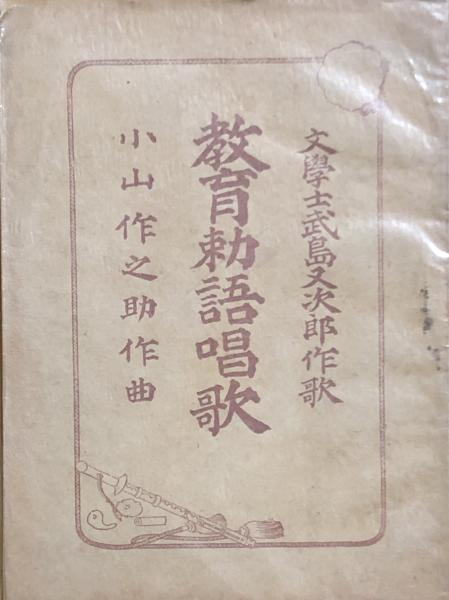 文學士武島又次郎作歌
教育勅語唱歌
小山作之助作曲